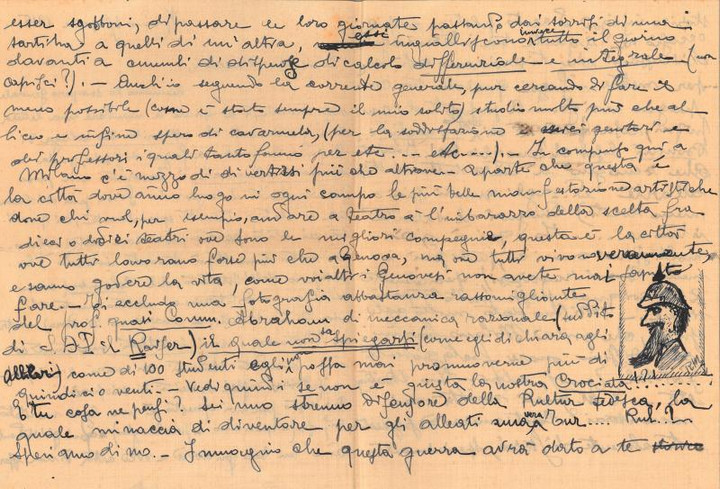 esser sgobboni, di passare le loro giornate passando dai sorrisi di una
sartina a quelli di un'altra, essi ingialliscono invece tutto il giorno
davanti a cumuli di dispense di calcolo differenziale e integrale (non
capisci?). - Anch'io seguendo la corrente generale, pur cercando di fare il
meno possibile (come è stato sempre il mio solito) studio molto più che al
liceo e infine spero di cavarmela, (per la soddisfazione miei genitori e
dei professori i quali tanto fanno per etc. -- etc----). - In compenso qui a
Milano c'è mezzo di divertirsi più che altrove - a parte che questa è
la città dove anno luogo in ogni campo le più belle manifestazioni artistiche
dove chi vuol, per esempio, andare a teatro a l'imbarazzo della scelta fra
dieci o dodici teatri ove sono le migliori compagnie, questa è la città
ove tutti lavorano forse più che a Genova, ma ove tutti vivono veramente,
e sanno godere la vita, come voialtri Genovesi non avete mai saputo
fare. - Ti accludo una fotografia abbastanza rassomigliante
del prof. quasi Comm. Abraham di meccanica razionale (suddito
di S. M. il Kaiser) il quale non sa spiegarsi (come egli dichiara agli
Allievi) come di 100 studenti egli non possa mai promuoverne più di
quindici o venti. - Vedi quindi se non è giusta la nostra Crociata..........
E tu cosa ne pensi? Sei uno strenuo difensore della Kultur tedesca, la
quale minaccia di diventare per gli alleati una vera Tur.... Kul..?
Speriamo di no. - Immagino che questa guerra avrà dato a te